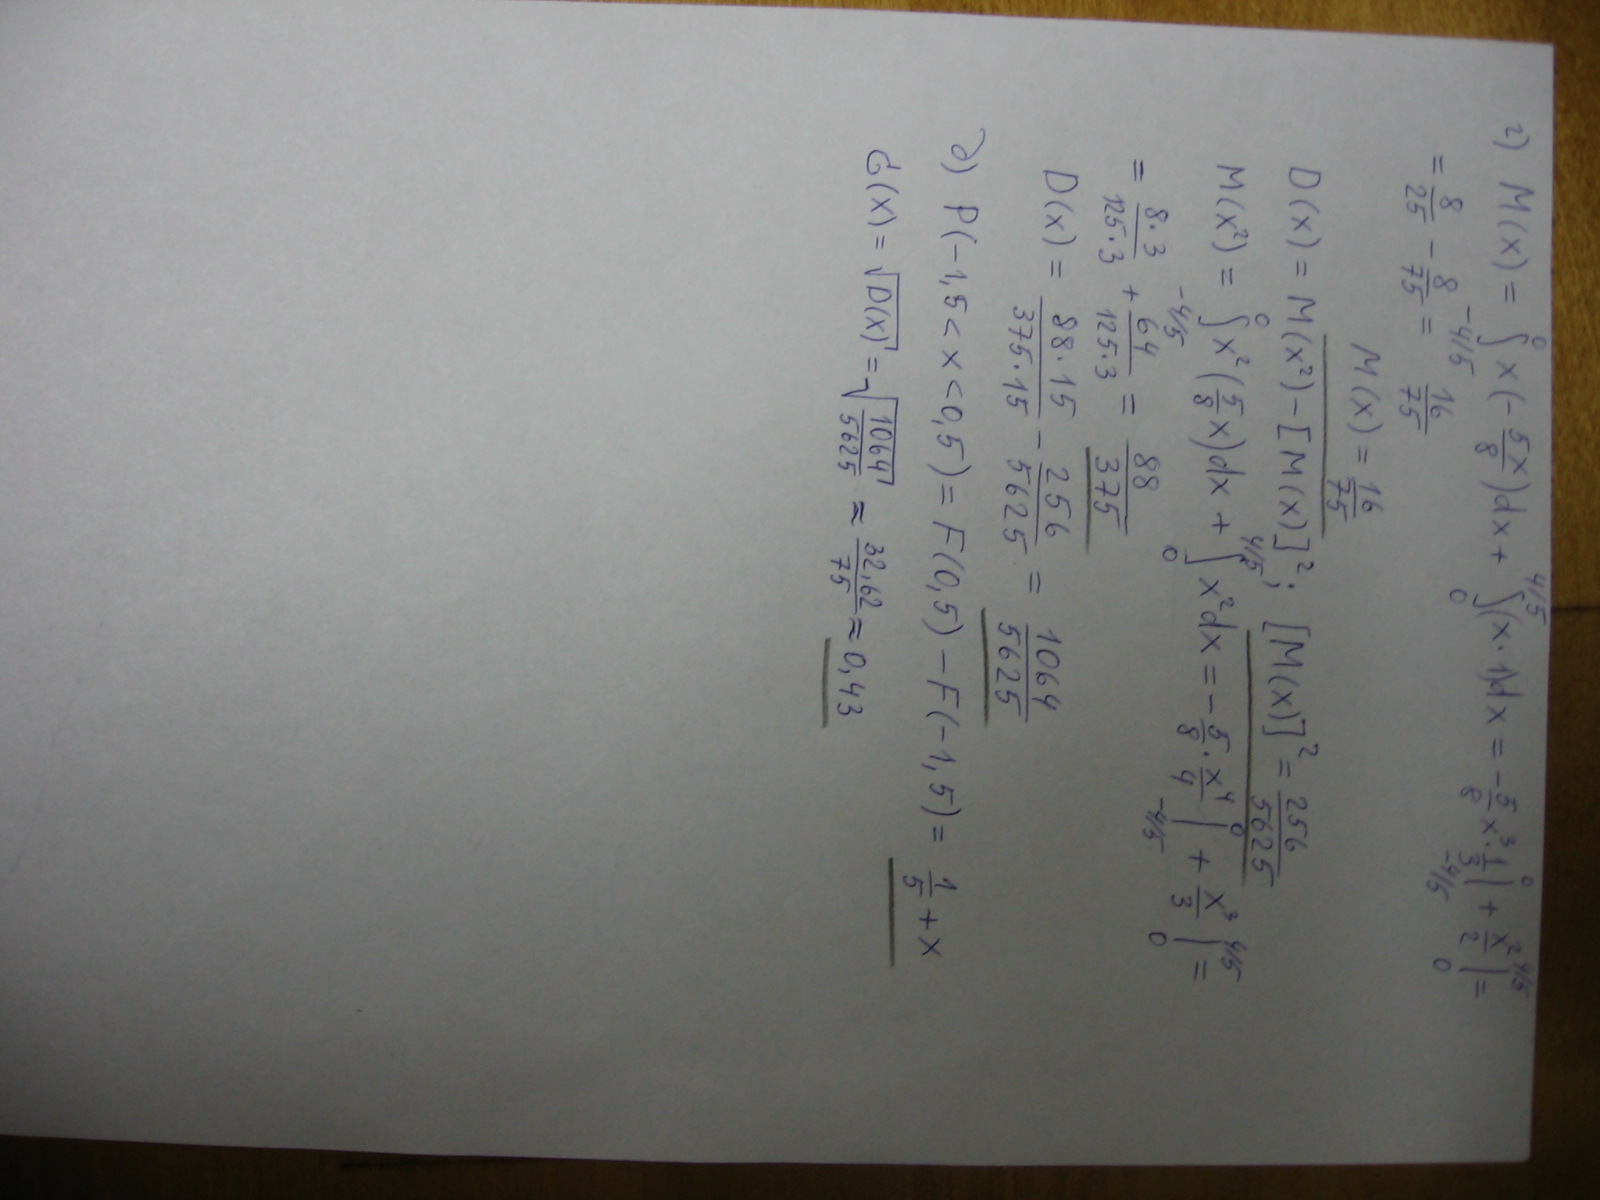 г) M(x) = ∫_{-4/5}^{0} x(-5x/8)dx + ∫_{0}^{4/5} (x·1)dx = -5/8 x³·1/3 |_{-4/5}^{0} + x²/2 |_{0}^{4/5} =
= 8/25 - 8/75 = 16/75
M(x) = 16/75
D(x) = M(x²) - [M(x)]²; [M(x)]² = 256/5625
M(x²) = ∫_{-4/5}^{0} x²(5/8 x)dx + ∫_{0}^{4/5} x²dx = -5/8 · x⁴/4 |_{-4/5}^{0} + x³/3 |_{0}^{4/5} =
= 8·3/125·3 + 64/125·3 = 88/375
D(x) = 88·15/375·15 - 256/5625 = 1064/5625
д) P(-1,5 < x < 0,5) = F(0,5) - F(-1,5) = 1/5 + x
σ(x) = √D(x) = √1064/5625 ≈ 32,62/75 ≈ 0,43